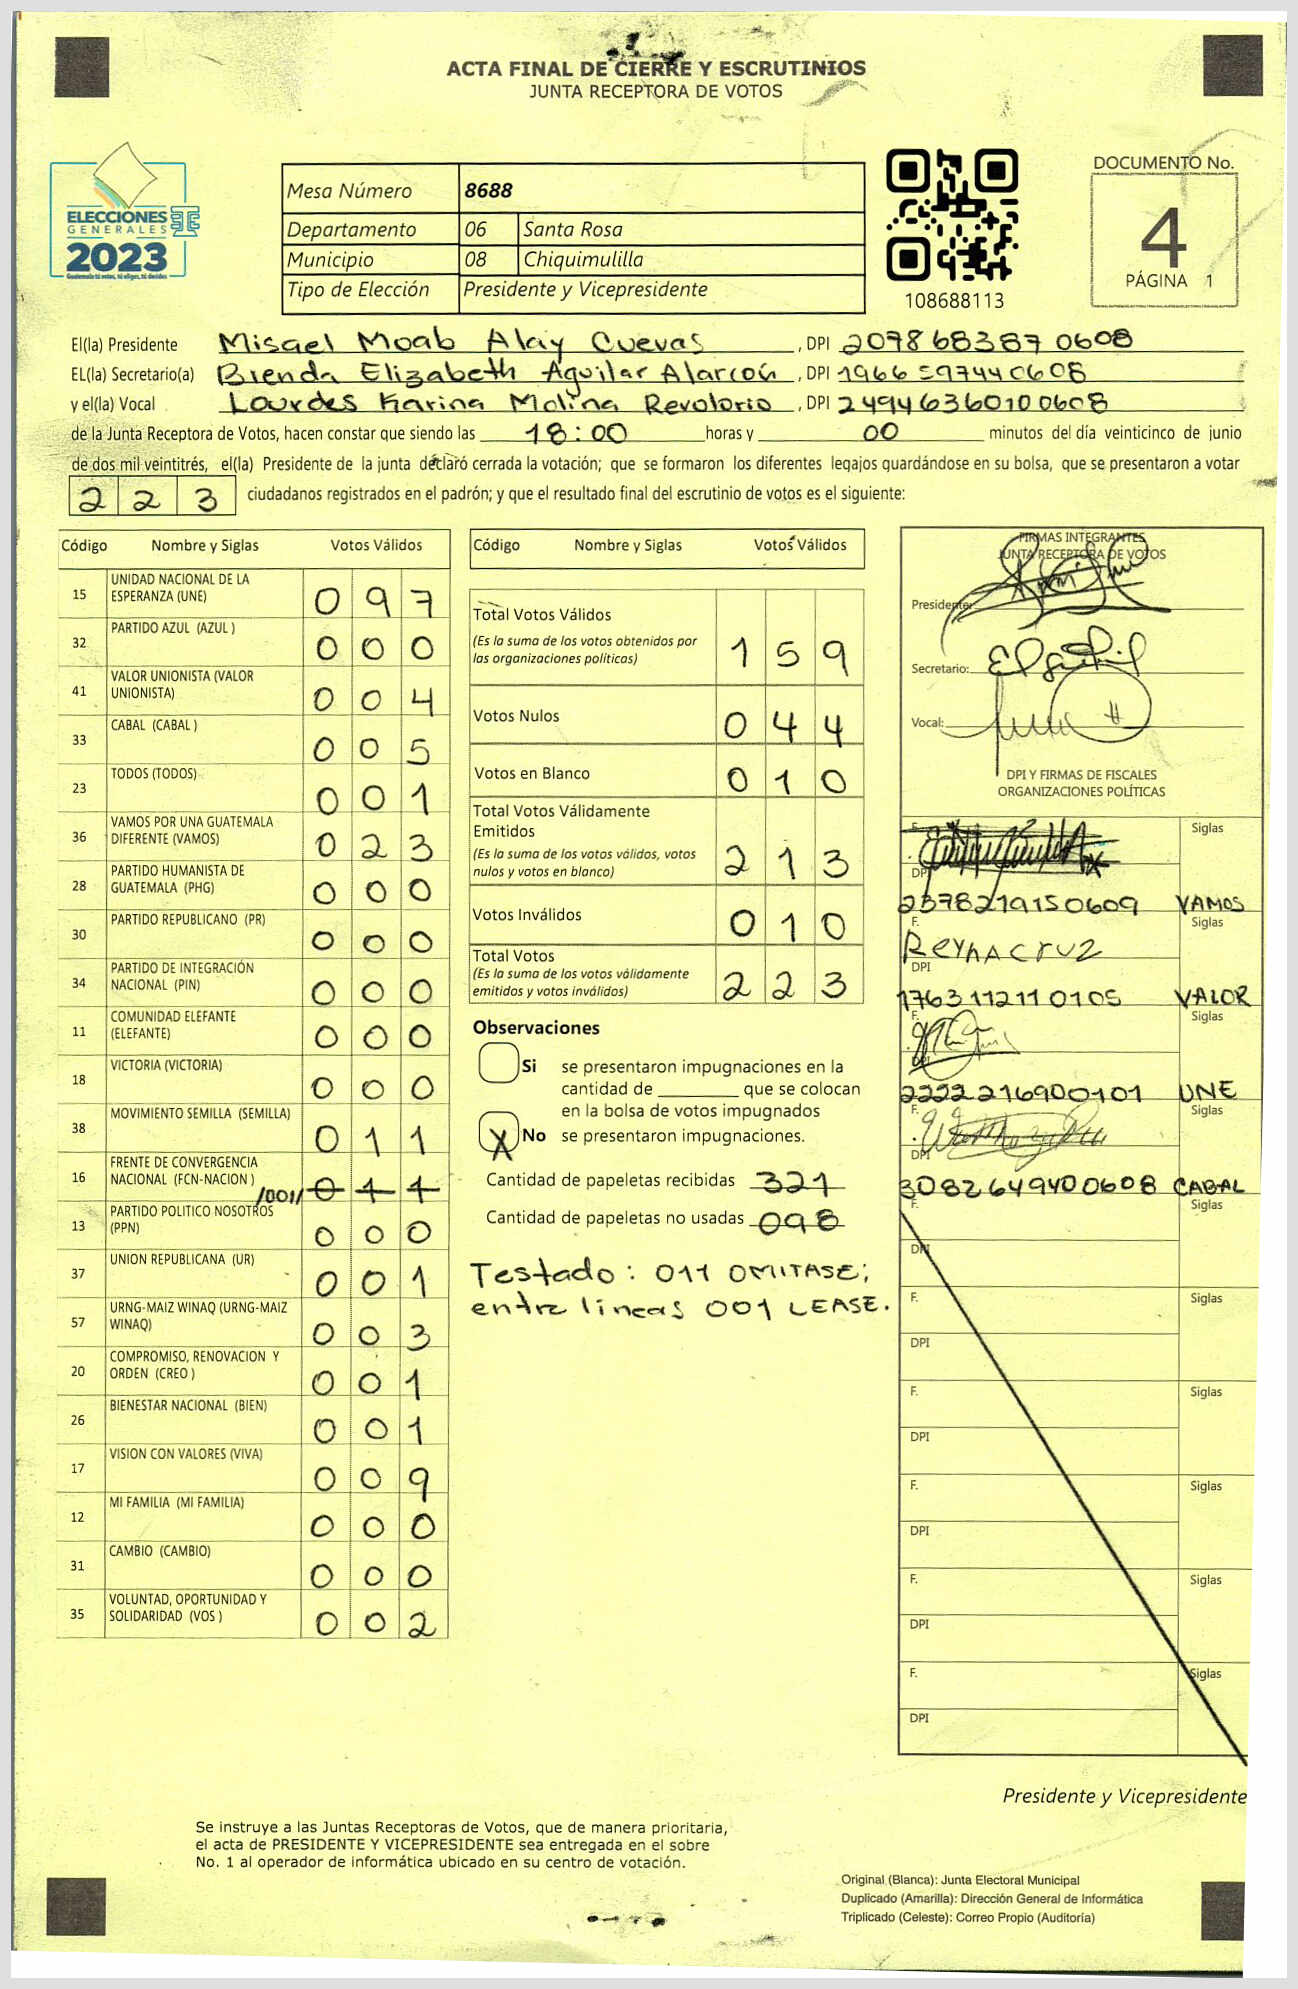 ACTA FINAL DE CIERRE Y ESCRUTINIOS
JUNTA RECEPTORA DE VOTOS
ELECCIONES
GENERALES
2023
Guatemala tú votas, tú eliges, tú decides
Mesa Número 8688
Departamento 06 Santa Rosa
Municipio 08 Chiquimulilla
Tipo de Elección Presidente y Vicepresidente
108688113
DOCUMENTO No.
4
PÁGINA 1
El(la) Presidente Misael Moab Alay Cuevas, DPI 2078683870608
EL(la) Secretario(a) Brenda Elizabeth Aguilar Alarcón, DPI 1966597440608
y el(la) Vocal Lourdes Karina Molina Revolorio, DPI 2494636010608
de la Junta Receptora de Votos, hacen constar que siendo las 18:00 horas y 00 minutos del día veinticinco de junio
de dos mil veintitrés, el(la) Presidente de la junta declaró cerrada la votación; que se formaron los diferentes legajos guardándose en su bolsa, que se presentaron a votar
223 ciudadanos registrados en el padrón; y que el resultado final del escrutinio de votos es el siguiente:
Código Nombre y Siglas Votos Válidos
15 UNIDAD NACIONAL DE LA
ESPERANZA (UNE) 097
32 PARTIDO AZUL (AZUL ) 000
41 VALOR UNIONISTA (VALOR
UNIONISTA) 004
33 CABAL (CABAL ) 005
23 TODOS (TODOS) 001
36 VAMOS POR UNA GUATEMALA
DIFERENTE (VAMOS) 023
28 PARTIDO HUMANISTA DE
GUATEMALA (PHG) 000
30 PARTIDO REPUBLICANO (PR) 000
34 PARTIDO DE INTEGRACIÓN
NACIONAL (PIN) 000
11 COMUNIDAD ELEFANTE
(ELEFANTE) 000
18 VICTORIA (VICTORIA) 000
38 MOVIMIENTO SEMILLA (SEMILLA) 011
16 FRENTE DE CONVERGENCIA
NACIONAL (FCN-NACION ) /001/ 011
13 PARTIDO POLITICO NOSOTROS
(PPN) 000
37 UNION REPUBLICANA (UR) 001
57 URNG-MAIZ WINAQ (URNG-MAIZ
WINAQ) 003
20 COMPROMISO, RENOVACION Y
ORDEN (CREO ) 001
26 BIENESTAR NACIONAL (BIEN) 001
17 VISION CON VALORES (VIVA) 009
12 MI FAMILIA (MI FAMILIA) 000
31 CAMBIO (CAMBIO) 000
35 VOLUNTAD, OPORTUNIDAD Y
SOLIDARIDAD (VOS ) 002
Código Nombre y Siglas Votos Válidos
Total Votos Válidos
(Es la suma de los votos obtenidos por
las organizaciones políticas) 159
Votos Nulos 044
Votos en Blanco 010
Total Votos Válidamente
Emitidos
(Es la suma de los votos válidos, votos
nulos y votos en blanco) 213
Votos Inválidos 010
Total Votos
(Es la suma de los votos válidamente
emitidos y votos inválidos) 223
Observaciones
Si se presentaron impugnaciones en la
cantidad de ________ que se colocan
en la bolsa de votos impugnados
X No se presentaron impugnaciones.
Cantidad de papeletas recibidas 321
Cantidad de papeletas no usadas 098
Testado: 011 OMITASE;
entre lineas 001 LEASE.
FIRMAS INTEGRANTES
JUNTA RECEPTORA DE VOTOS
Presidente:
Secretario:
Vocal:
DPI Y FIRMAS DE FISCALES
ORGANIZACIONES POLÍTICAS
F. Siglas
DPI
2378219150609 VAMOS
F. Siglas
Reyna Cruz
DPI
1763112110105 VALOR
F. Siglas
DPI
2222216900101 UNE
F. Siglas
DPI
3082649400608 CABAL
F. Siglas
DPI
F. Siglas
DPI
F. Siglas
DPI
F. Siglas
DPI
F. Siglas
DPI
F. Siglas
DPI
Presidente y Vicepresidente
Se instruye a las Juntas Receptoras de Votos, que de manera prioritaria,
el acta de PRESIDENTE Y VICEPRESIDENTE sea entregada en el sobre
No. 1 al operador de informática ubicado en su centro de votación.
Original (Blanca): Junta Electoral Municipal
Duplicado (Amarilla): Dirección General de Informática
Triplicado (Celeste): Correo Propio (Auditoría)